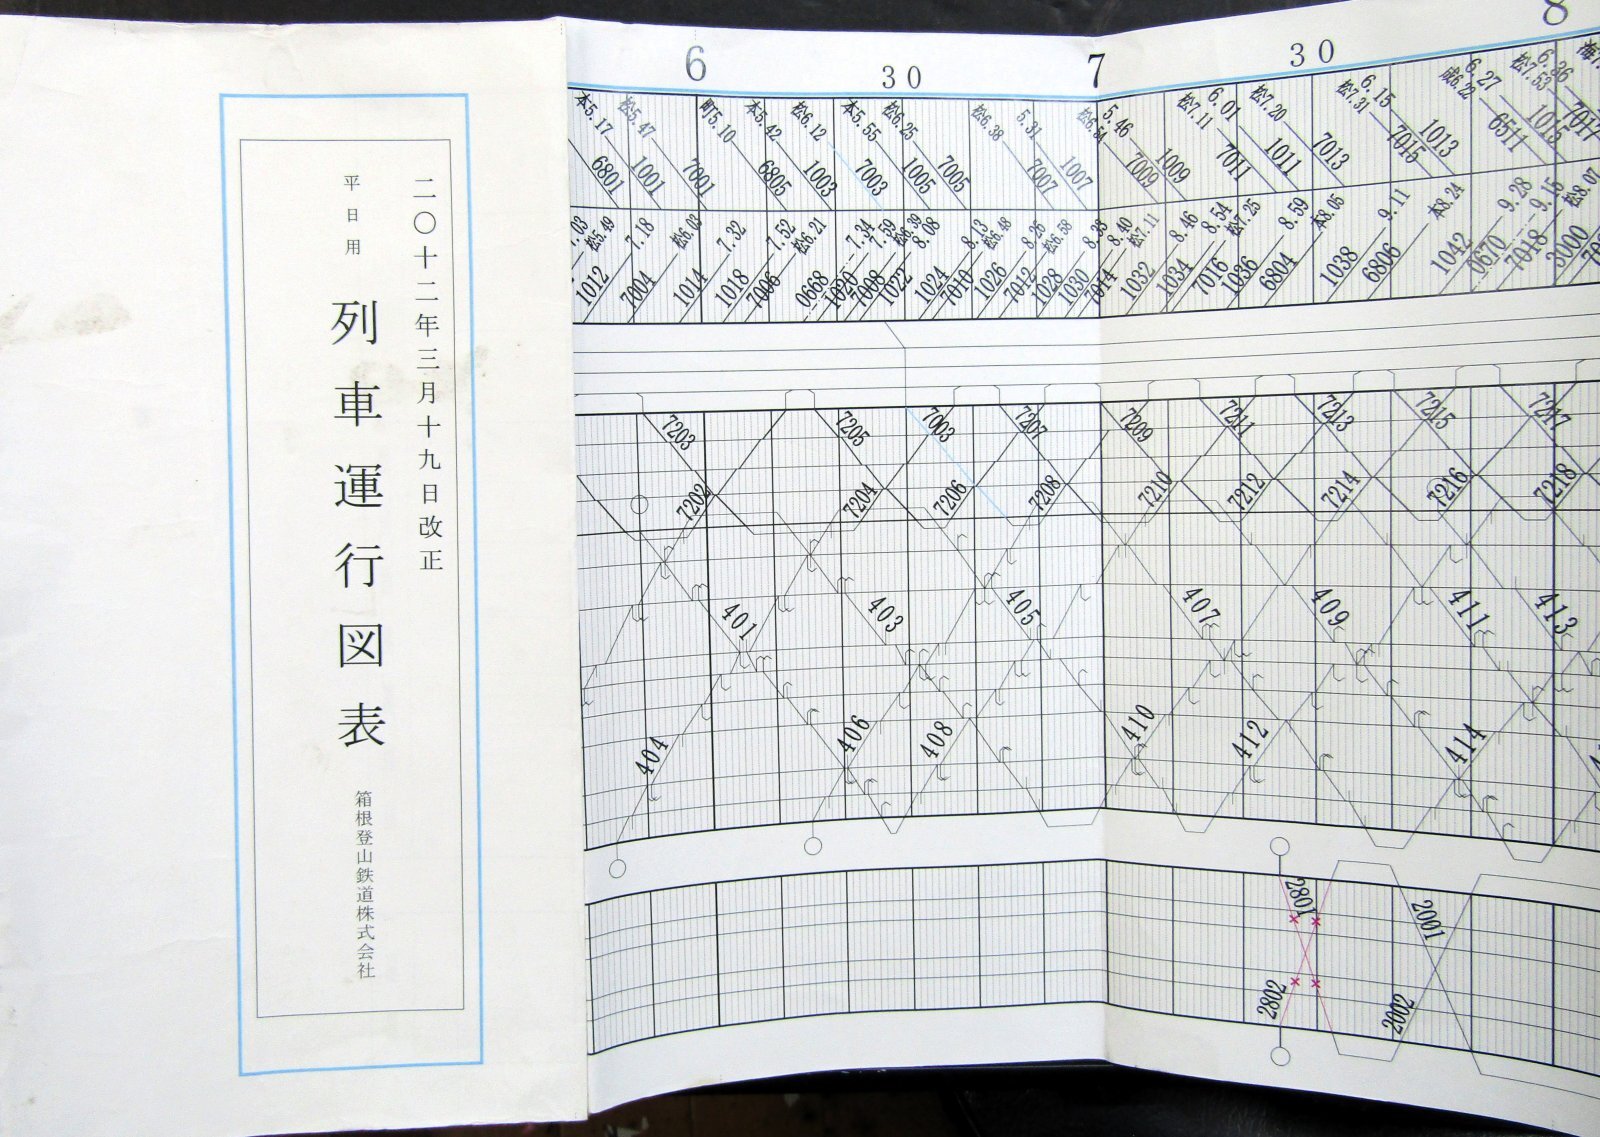 二〇十二年三月十九日改正
平日用
列車運行図表
箱根登山鉄道株式会社
6 30 7 30 8
本5.17 松5.47 町5.10 本5.42 松6.12 本5.55 松6.25 松6.38 5.31 松6.54 5.46 松7.11 6.01 松7.20 松7.31 6.15 成6.22 6.27 松7.53 6.36
6801 1001 7001 6805 1003 7003 1005 7005 7007 1007 7009 1009 7011 1011 7013 7015 1013 6511 1015 7017
松5.49 7.18 松6.03 7.32 7.52 松6.21 7.34 7.59 松6.39 8.08 8.13 松6.48 8.26 松6.58 8.33 8.40 松7.11 8.46 8.54 松7.25 8.59 本8.05 9.11 本8.24 9.28 9.15 松8.07
1012 7004 1014 1018 7006 0668 1020 7008 1022 1024 7010 1026 7012 1028 1030 7014 1032 1034 7016 1036 6804 1038 6806 1042 0670 7018 3000
7203 7205 7003 7207 7209 7211 7213 7215 7217
7202 7204 7206 7208 7210 7212 7214 7216 7218
401 403 405 407 409 411 413
404 406 408 410 412 414
2801 2001
2802 2002